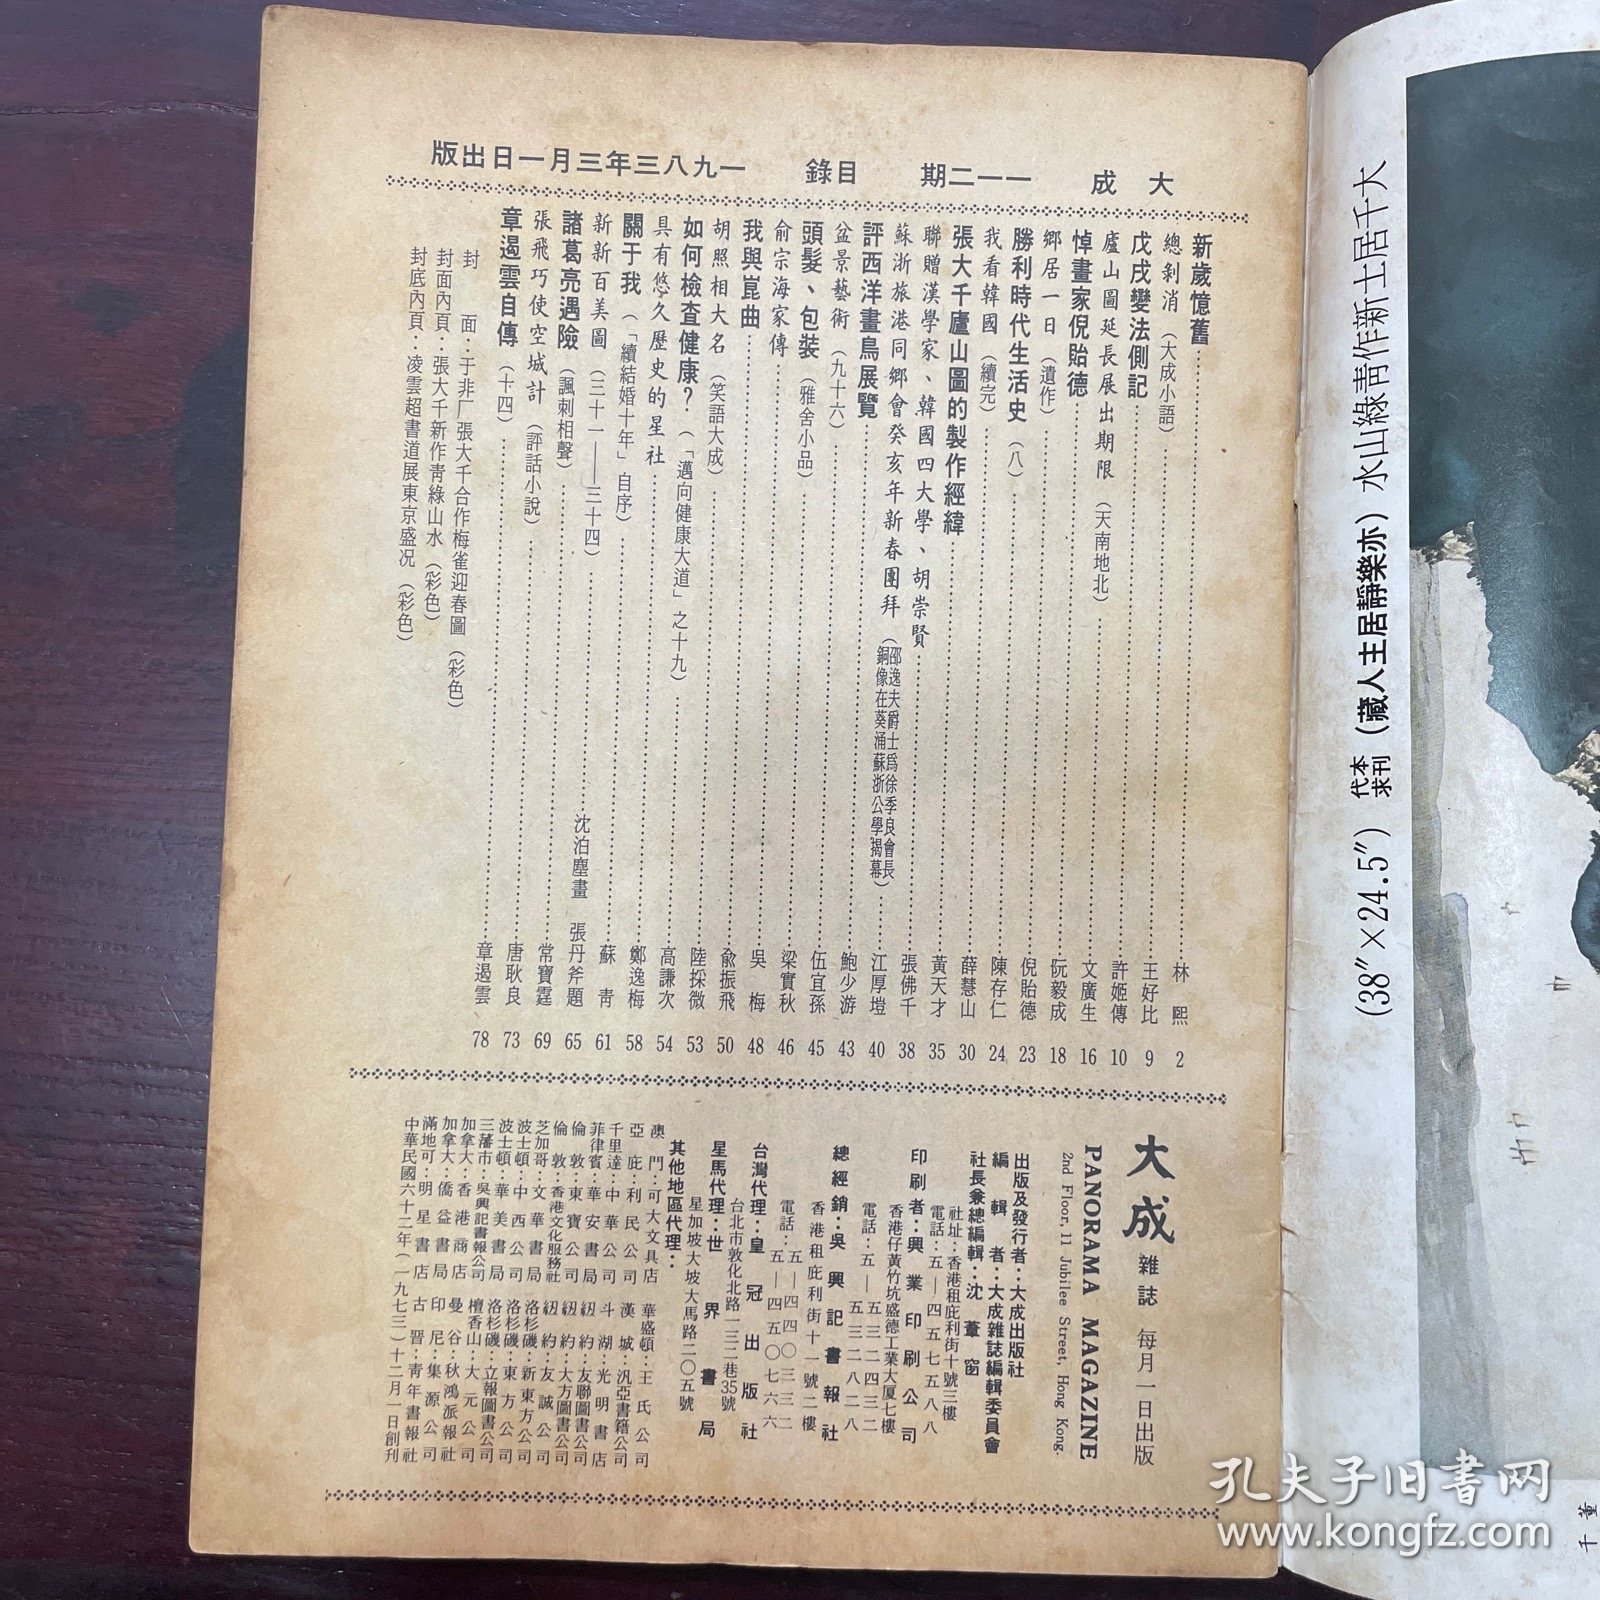 大成　一一二期　目錄　一九八三年三月一日出版
新歲憶舊……林熙 2
總剝消（大成小語）……王好比 9
戊戌變法側記……許姬傳 10
廬山圖延長展出期限（天南地北）……文廣生 16
悼畫家倪貽德……阮毅成 18
鄉居一日（遺作）……倪貽德 23
勝利時代生活史（八）……陳存仁 24
我看韓國（續完）……薛慧山 30
張大千廬山圖的製作經緯……黃天才 35
聯贈漢學家、韓國四大學、胡崇賢……張佛千 38
蘇浙旅港同鄉會癸亥年新春團拜（邵逸夫爵士爲徐季良會長銅像在葵涌蘇浙公學揭幕）……江厚塏 40
評西洋畫鳥展覽……鮑少游 43
盆景藝術（九十六）……伍宜孫 45
頭髮、包裝（雅舍小品）……梁實秋 46
俞宗海家傳……吳梅 48
我與崑曲……俞振飛 50
胡照相大名（笑語大成）……陸採微 53
如何檢查健康？（「邁向健康大道」之十九）……高謙次 54
具有悠久歷史的星社……鄭逸梅 58
關于我（「續結婚十年」自序）……蘇青 61
新新百美圖（三十一——三十四）……沈泊塵畫　張丹斧題 65
諸葛亮遇險（諷刺相聲）……常寶霆 69
張飛巧使空城計（評話小說）……唐耿良 73
章遏雲自傳（十四）……章遏雲 78
封　面：于非厂張大千合作梅雀迎春圖（彩色）
封面內頁：張大千新作靑綠山水（彩色）
封底內頁：凌雲超書道展東京盛況（彩色）
大成雜誌　每月一日出版
PANORAMA MAGAZINE
2nd Floor, 11 Jubilee Street, Hong Kong.
出版及發行者：大成出版社
編輯者：大成雜誌編輯委員會
社長兼總編輯：沈葦窗
社址：香港租庇利街十號三樓
電話：五—四五七五八八
印刷者：興業印刷公司
香港仔黃竹坑盛德工業大廈七樓
電話：五—五三二四三二
總經銷：吳興記書報社
香港租庇利街十一號二樓
電話：五—四五〇七六六
台灣代理：皇冠出版社
台北市敦化北路一二〇巷35號
星馬代理：世界書局
星加坡大坡大馬路二〇五號
其他地區代理：
澳門：可大文具店　華盛頓：王氏公司
亞庇：利民公司　漢城：汎亞書籍公司
千里達：中華公司　斗湖：光明書店
菲律賓：華安書局　紐約：友聯圖書公司
倫敦：東寶公司　紐約：大方圖書公司
倫敦：香港文化服務社　紐約：友誠公司
芝加哥：文華書局　洛杉磯：新東方公司
波士頓：中西公司　洛杉磯：東方公司
波士頓：華美書局　洛杉磯：立報圖書公司
三藩市：吳興記書報公司　檀香山：大元公司
加拿大：香港商店　曼谷：秋鴻派報社
加拿大：僑益書局　印尼：集源公司
滿地可：明星書店　古晋：青年書報社
中華民國六十二年（一九七三）十二月一日創刊
大千居士新作靑綠山水（亦樂靜居主人藏）本刊代求（38″×24.5″）
千
董
孔夫子旧书网
www.kongfz.com